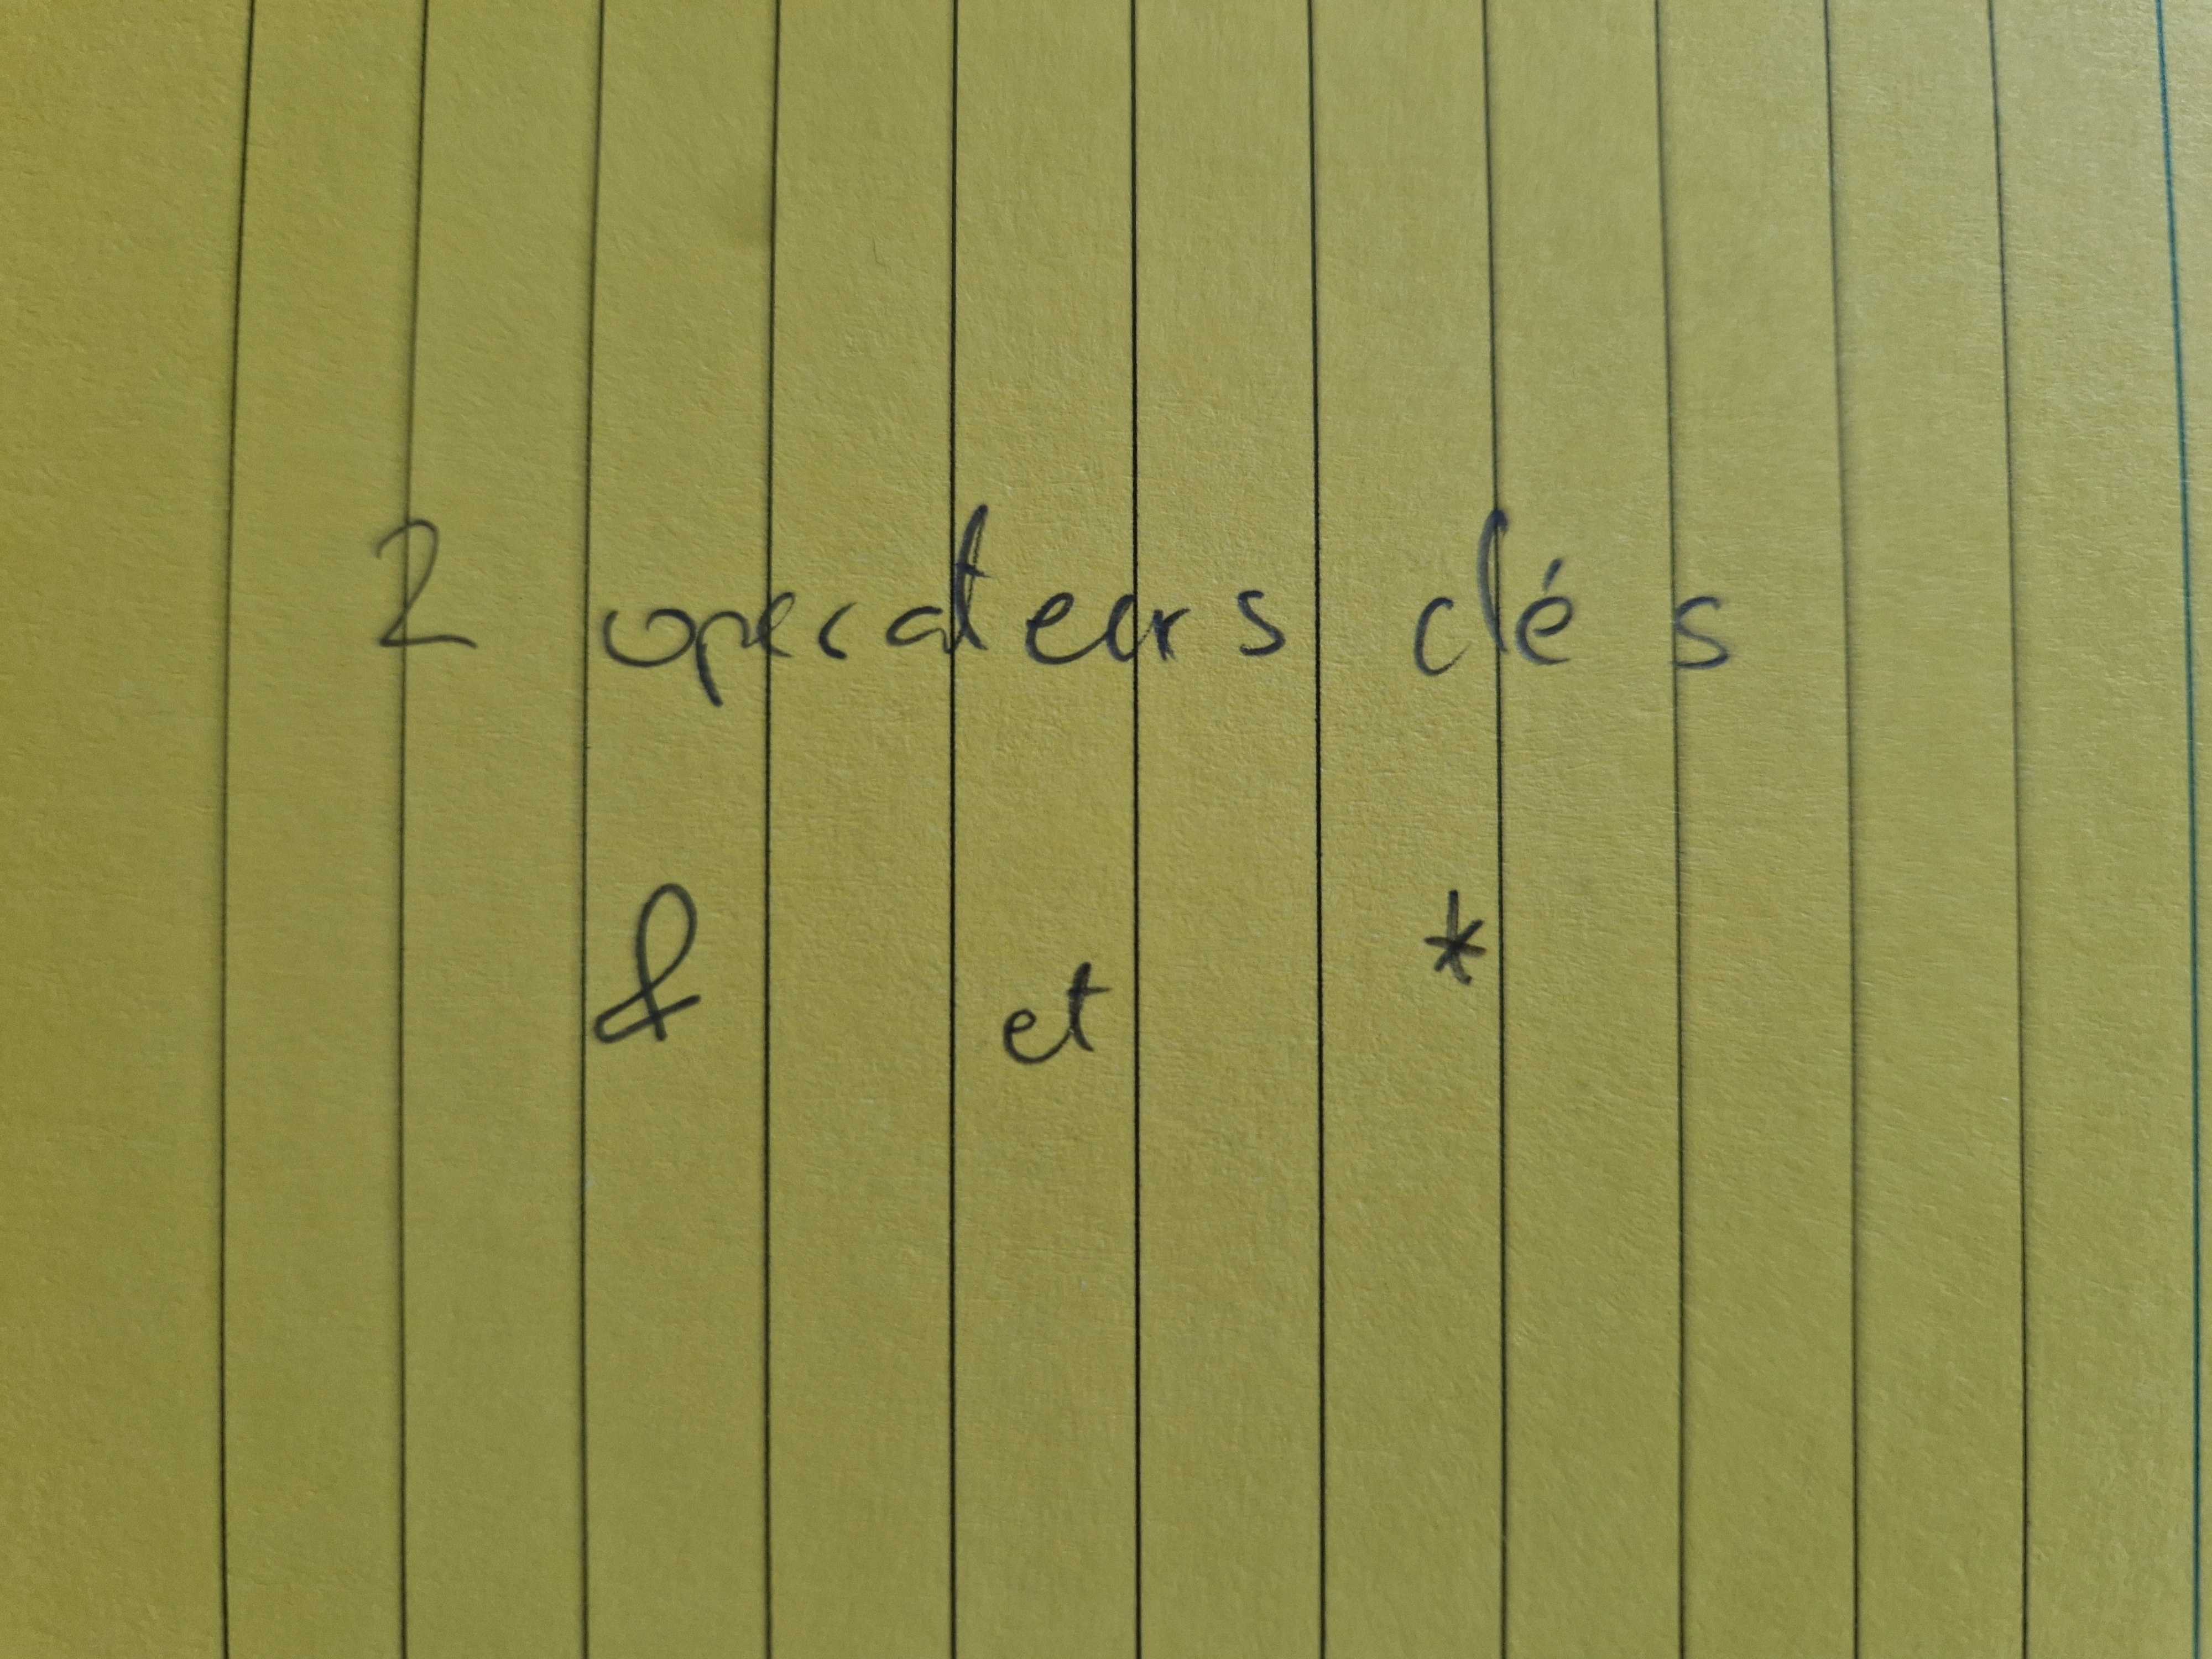 2 operateurs clés
& et *